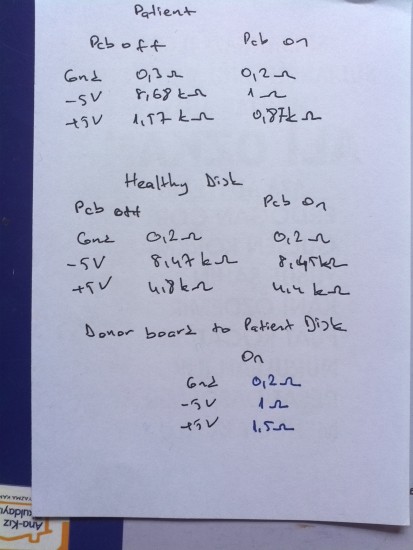 Patient
Pcb off Pcb on
Gnd 0,3Ω 0,2Ω
-5V 8,68kΩ 1Ω
+5V 1,57kΩ 0,87kΩ
Healthy Disk
Pcb off Pcb On
Gnd 0.2Ω 0.2Ω
-5V 8,47kΩ 8,45kΩ
+5V 4.8kΩ 4.4kΩ
Donor board to Patient Disk
On
Gnd 0,2Ω
-5V 1Ω
+5V 1.5Ω
Ana-Kız